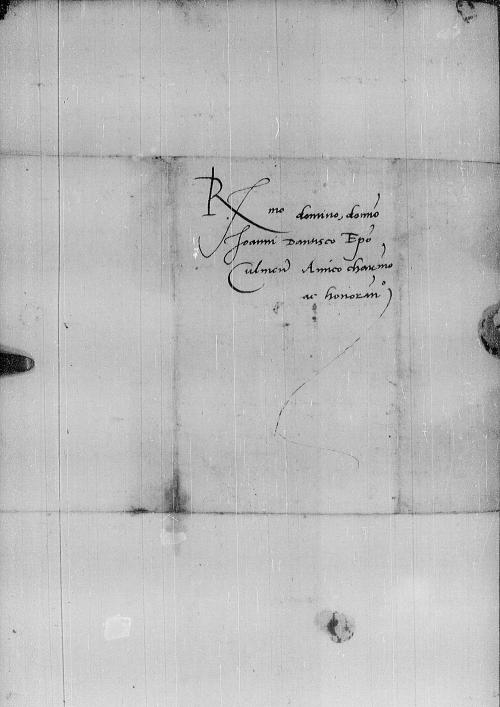 Rmo domino, domo
Joanni Dantisco Epo
Culmen Amico charmo
ac honoran